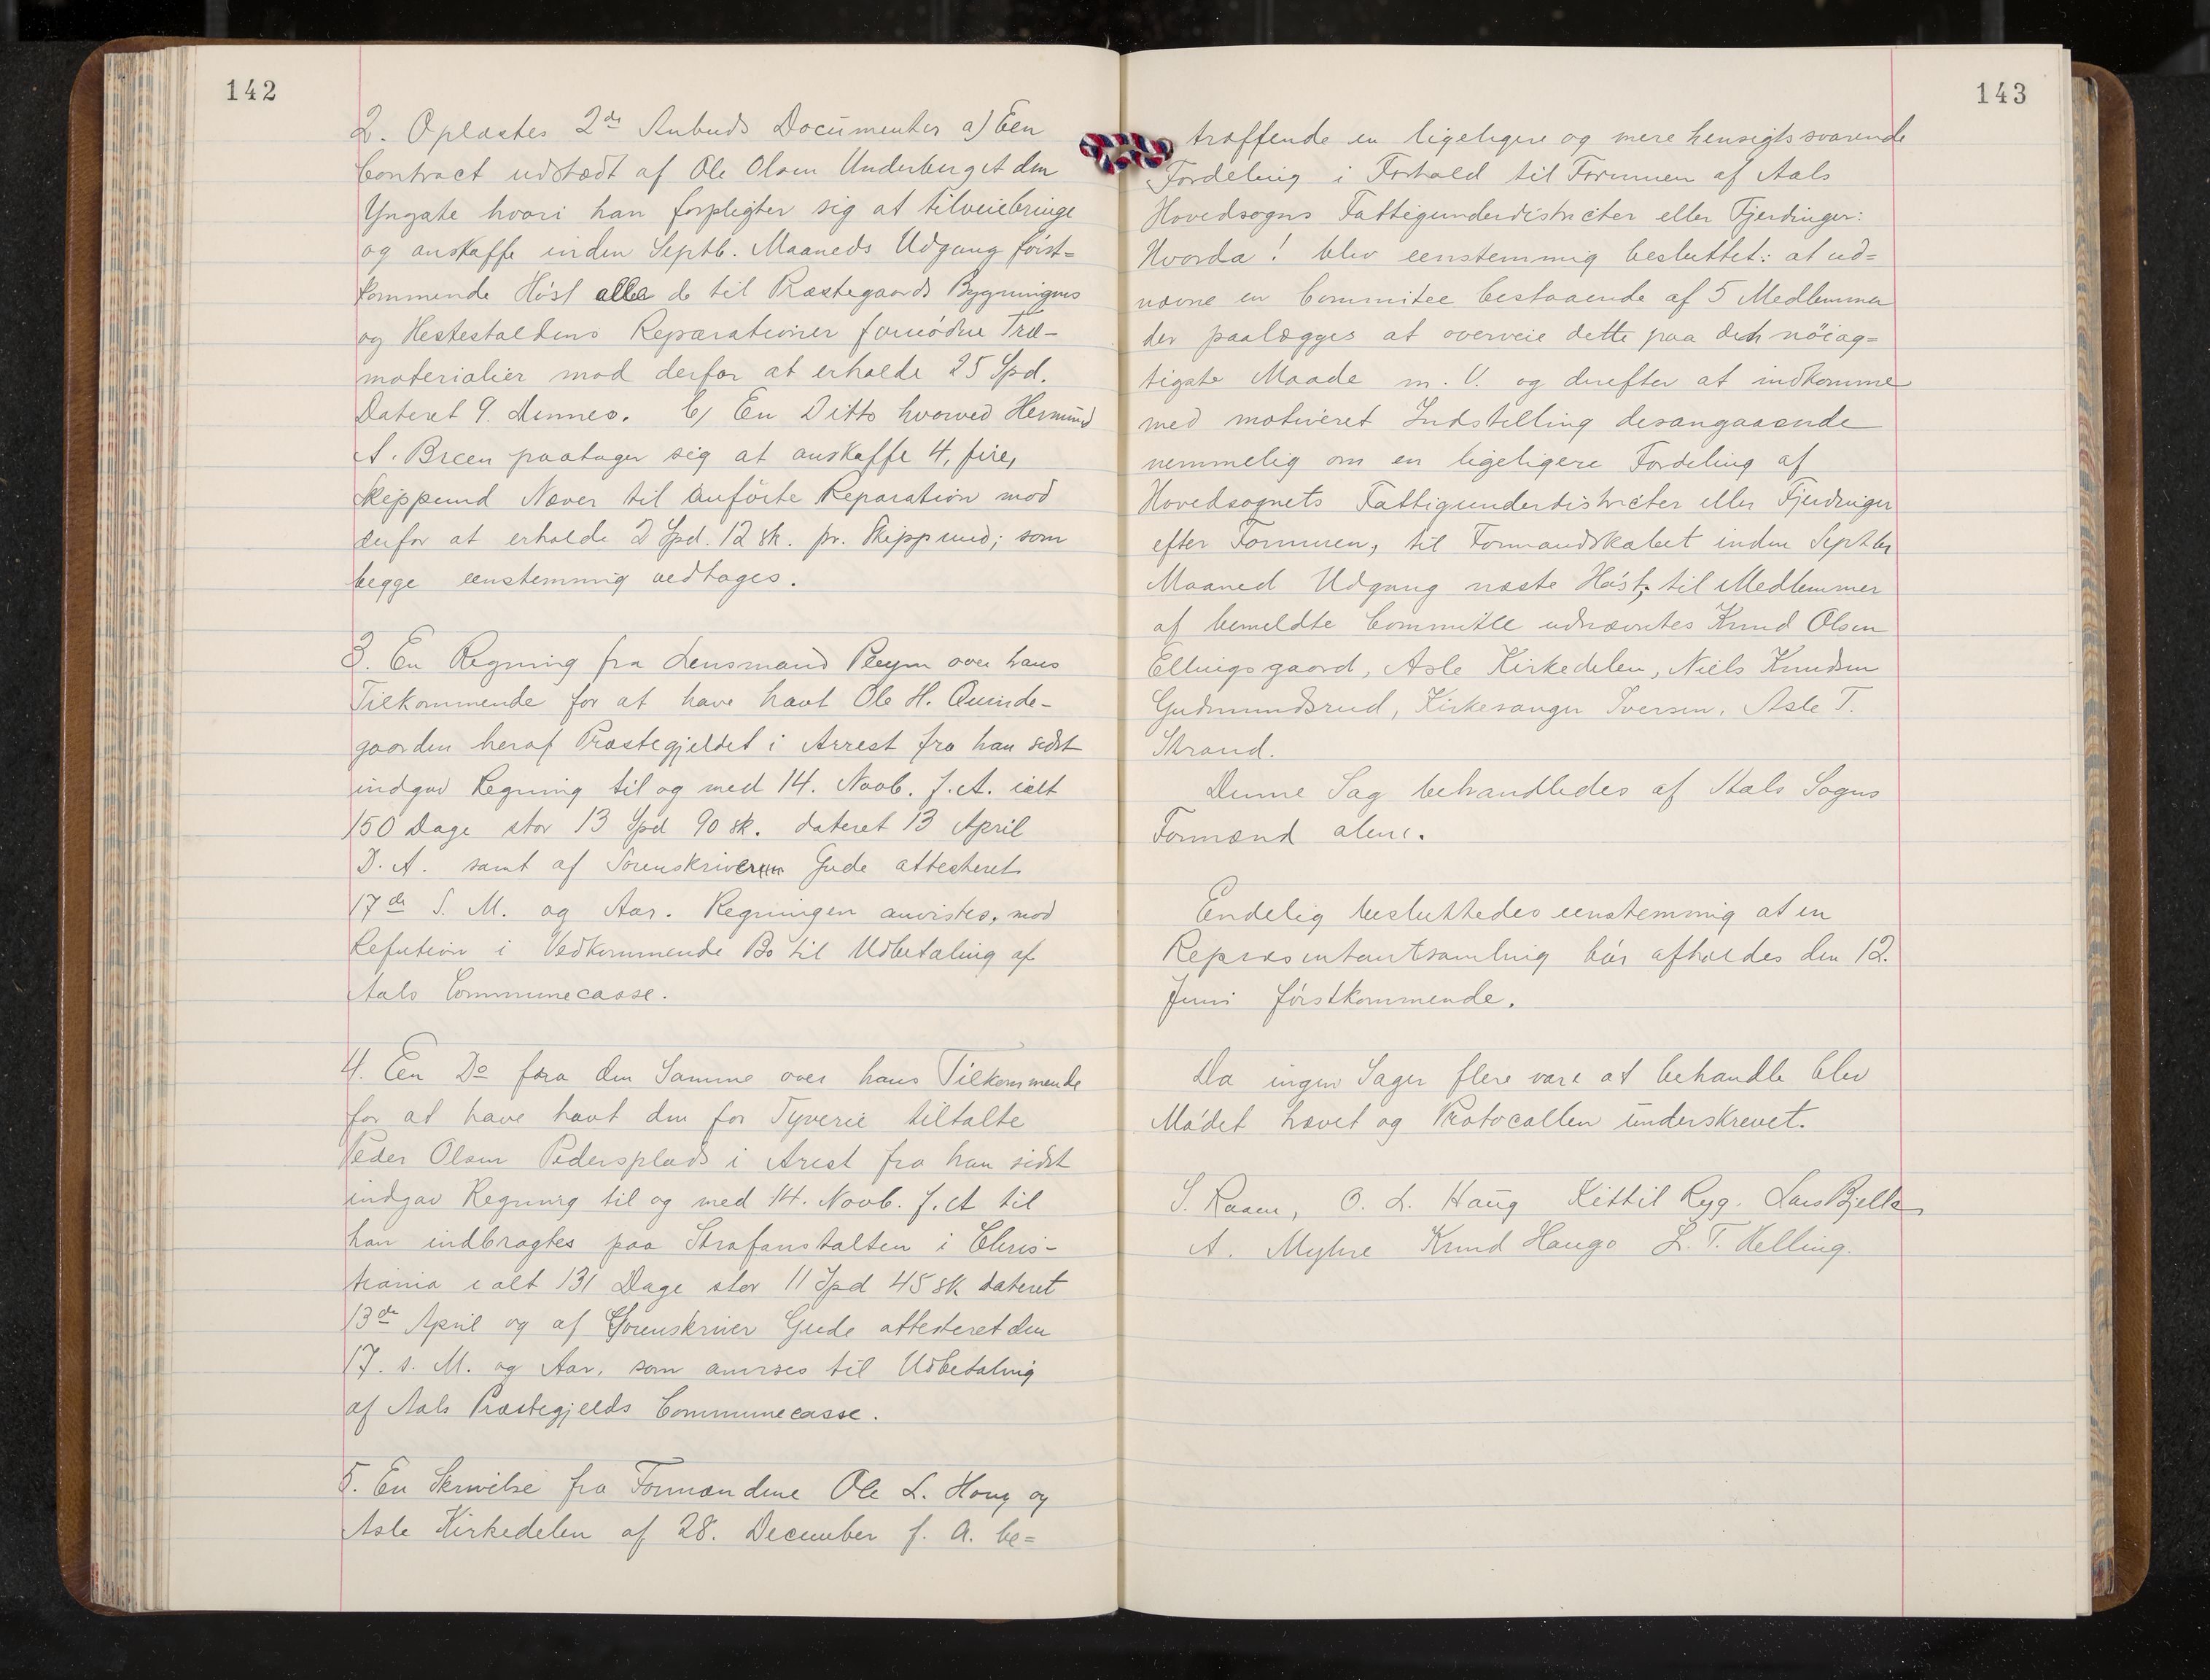 142
2. Oplæstes 2de Anbuds Documenter a) Een
Contract udstædt af Ole Olsen Underberget den
Yngste hvori han forpligter sig at tilveiebringe
og anskaffe inden Septb. Maaneds Udgang först=
kommende Höst alle de til Præstegaards Bygningens
og Hestestaldens Reparationer fornödne Træ-
materialier mod derfor at erholde 25 Spd.
Dateret 9. dennes. b) En Ditto hvorved Hermund
A. Breen paatager sig at anskaffe 4, fire,
Skippund Næver til anförte Reparation mod
derfor at erholde 2 Spd. 12 sk. pr. Skippund; som
begge eenstemmig vedtages.
3. En Regning fra Lensmand Pleym over hans
Tilkommende for at have havt Ole H. Quinde-
gaarden heraf Præstegjeldet i Arrest fra han sidst
indgav Regning til og med 14. Novb. f. A. ialt
150 Dage stor 13 Spd 90 sk. dateret 13 April
D. A. samt af Sorenskriveren Gude attesteret
17de S. M. og Aar. Regningen anvistes, mod
Refution i Vedkommende Bo til Udbetaling af
Aals Communecasse.
4. Een Do fra den Samme over hans Tilkommende
for at have havt den for Tyverie tiltalte
Peder Olsen Pedersplads i Arest fra han sidst
indgav Regning til og med 14. Novb. f. A til
han indbragtes paa Strafanstalten i Chris-
tiania ialt 131 Dage stor 11 Spd 45 sk dateret
13de April og af Sorenskriver Gude attesteret den
17. s. M. og Aar, som anvises til Udbetaling
af Aals Præstegjelds Communecasse.
5. En Skrivelse fra Formændene Ole L. Houg og
Asle Kirkedelen af 28. December f. A. be=
143
træffende en ligeligere og mere hensigtssvarende
Fordeling i Forhold til Formuen af Aals
Hovedsogns Fattigunderdistricter eller Fjerdinger:
Hvorda! blev eenstemmig besluttet: at ud=
nævne en Commitee bestaaende af 5 Medlemmer
der paalægges at overveie dette paa den nöiag=
tigste Maade m. V. og derefter at indkomme
med motiveret Indstilling desangaaende
nemmelig om en ligeligere Fordeling af
Hovedsognets Fattigunderdistricter eller Fjerdinger
efter Formuen, til Formandskabet inden Septbr
Maaned Udgang næste Höst; til Medlemmer
af bemeldte Committe udnævntes Knud Olsen
Ellingsgaard, Asle Kirkedelen, Niels Knudsen
Gudmundsrud, Kirkesanger Iversen, Asle T.
Strand.
Denne Sag behandledes af Aals Sogns
Formænd alene.
Endelig besluttedes eenstemmig at en
Repræsentantsamling bör afholdes den 12.
Juni förstkommende.
Da ingen Sager flere vare at behandle blev
Mödet hævet og Protocollen underskrevet.
S. Raaen, O. L. Haug Kittil Ryg. Lars Bjella
A. Myhre Knud Haugo L. T. Helling.